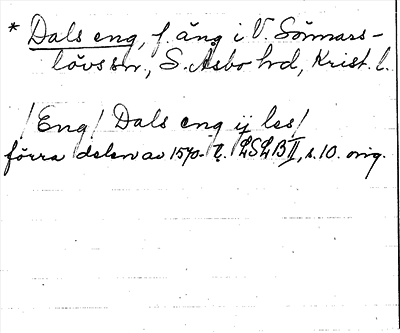 * Dals eng, f. äng i V. Sönnars-
lövs sn., S. Åsbo hd, Krist. l.
/Eng/ Dals eng ij les/
förra delen av 1570- t. LSLB II, s. 10. orig.